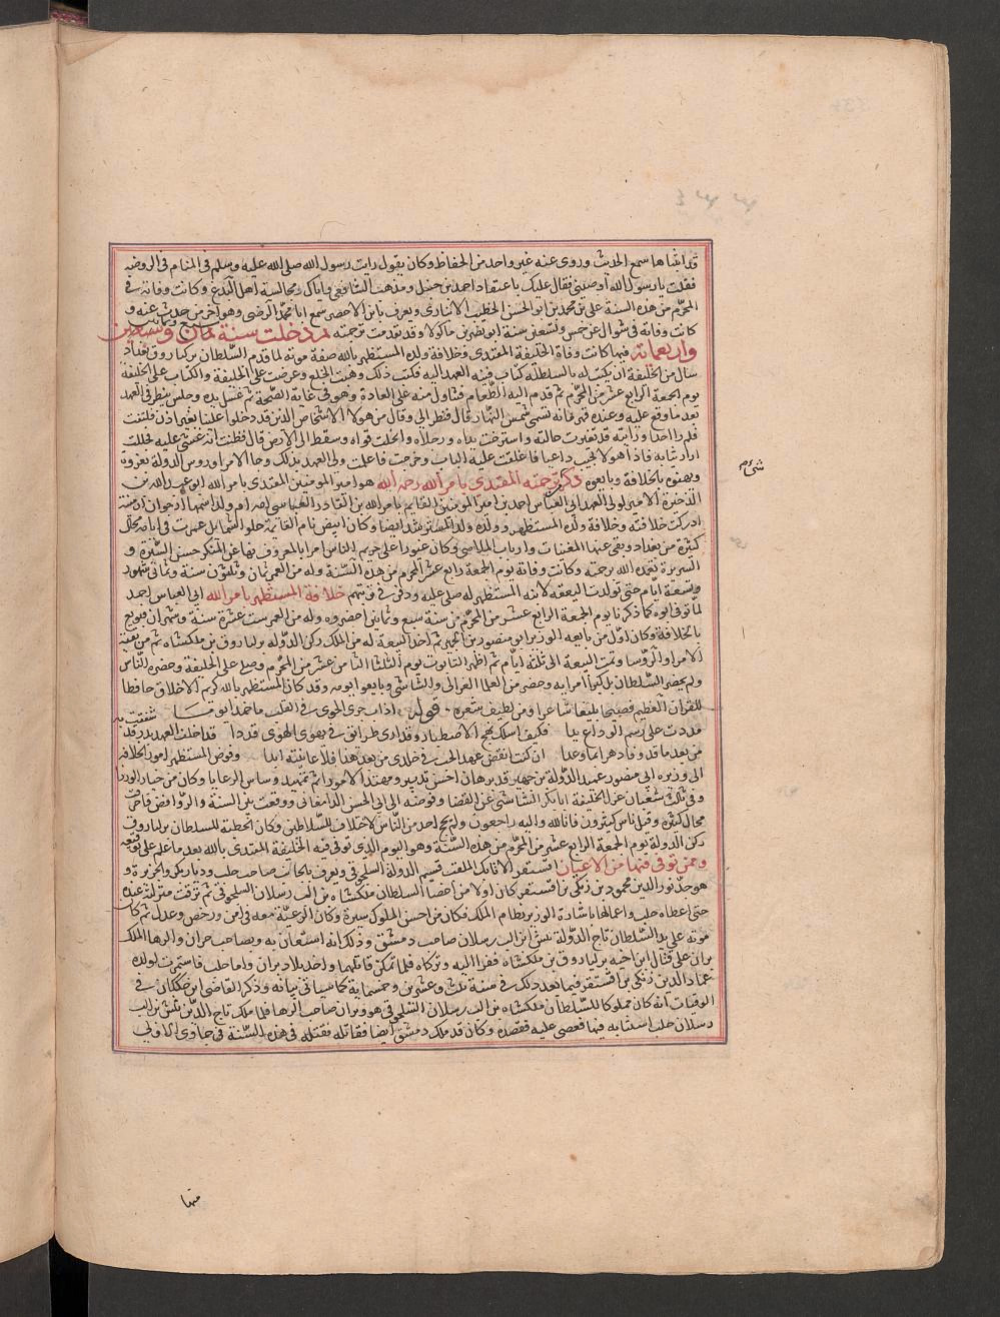 قد ابتناها سمع الحديث وروى عنه غير واحد من الحفاظ وكان يقول رايت رسول الله صلى الله عليه وسلم في المنام في الروضة
فقلت يا رسول الله اوصني فقال عليك باعتقاد احمد بن حنبل ومذهب الشافعي واياك ومجالسة اهل البدع وكانت وفاته في
المحرم من هذه السنة علي بن محمد بن ابو الحسن الخطيب الانباري ويعرف بابن الاخضر سمع ابا محمد الرضي وهو اخر من حدث عنه و
كانت وفاته في شوال عن خمس وتسعين سنة ابو نصر بن ماكولا وقد تقدمت ترجمته ثم دخلت سنة سبع وثمانين
واربعمائة فيها كانت وفاة الخليفة المقتدى وخلافة ولده المستظهر بالله صفة موته لما قدم السلطان بركياروق بغداد
سال من الخليفة ان يكتب له بالسلطنة كتاب فيه العهد اليه فكتب ذلك وهيت الخلع وعرضت على الخليفة والكتاب على الخليفة
يوم الجمعة الرابع عشر من المحرم ثم قدم اليه الطعام فتناول منه على العادة وهو في غاية الصحة ثم غسل يده وجلس ينظر في العهد
بعد ما وقع عليه وعنده قهرمانة تسمى شمس النهار قال فنظر الي وقال من هولا الاشخاص الذين قد دخلوا علينا بغير اذن فلتفت
فلم ار احدا ورايته قد تغيرت حالته واسترخت يداه ورجلاه وانحلت قواه وسقط الى الارض قال فظننت انه غشي عليه فحللت
ازرار ثيابه فاذا هو لا يجيب داعيا فاغلقت عليه الباب وخرجت فاعلمت ولي العهد بذلك وجا الامرا وروس الدولة يعزونه
ويهنوه بالخلافة وبايعوه ذكر ترجمة المقتدى بامر الله رحمه الله هو امير المومنين المقتدى بامر الله ابو عبد الله بن
الذخيرة الامير ولي العهد ابي العباس احمد بن امير المومنين القايم بامر الله بن القادر العباسي امه ام ولد اسمها ارجوان ارمنية
ادركت خلافته وخلافة ولده المستظهر وولد ولده المسترشد ايضا وكان ابيض تام القامة حلو الشمايل عمرت في ايامه محال
كثيرة من بغداد ونفى عنها المغنيات وارباب الملاهي وكان غيورا على حريم الناس امرا بالمعروف نهاء عن المنكر حسن السيرة و
السريرة تغمده الله برحمته وكانت وفاته يوم الجمعة رابع عشر المحرم من هذه السنة وله من العمر ثمان وثلثون سنة وثماني شهور
وتسعة ايام حتى توليت البيعة لابنه المستظهر ثم صلى عليه ودفن في تربتهم خلافة المستظهر بامر الله ابي العباس احمد
لما توفي ابوه كما ذكرنا يوم الجمعة الرابع عشر من المحرم من سنة سبع وثمانين احضروه وله من العمر ست عشرة سنة وشهران فبويع
بالخلافة وكان اول من بايعه الوزير ابو منصور بن جهير ثم اخذ البيعة له من الملك ركن الدولة بركياروق بن ملكشاه ثم من بقية
الامرا والروسا وتمت البيعة الى ثلثة ايام ثم اظهر التابوت يوم الثلثا الثامن عشر من المحرم وصلى على الخليفة وحضره الناس
ولم يحضر السلطان بل كبرا امرايه وحضر من العلما الغزالي والشاشي وبايعوا يومه وقد كان المستظهر بالله كريم الاخلاق حافظا
للقران العظيم فصيحا بليغا شاعرا ومن لطيف شعره قوله اذاب حر الجوى في القلب ما جمدا يوما
مددت على رسم الوداع يدا فكيف اسلك نهج الاصطبار وقد ارى طرائق في مهوى الهوى قددا قد اخلف العهد بدر قد شغفت به
من بعد ما قد وفا دهرا بما وعدا ان كنت انقض عهد الحب في خلدي من بعد هذا فلا عاينته ابدا وفوض المستظهر امور الخلافة
الى وزيره ابي منصور عميد الدولة بن جهير فدبرها احسن تدبير ومهد الامور اتم تمهيد وساس الرعايا وكان من خيار الوزرا
وفي ثالث شعبان عزل الخليفة ابا بكر الشاشي عن القضا وفوضه الى ابي الحسن الدامغاني ووقعت بين السنة والروافض فاحرقت
محال كثيرة وقتل ناس كثيرون فانا لله وانا اليه راجعون ولم يحج احد من الناس لاختلاف السلاطين وكان الخطبة للسلطان بركياروق
ركن الدولة يوم الجمعة الرابع عشر من المحرم من هذه السنة وهو اليوم الذي توفي فيه الخليفة المقتدى بالله بعد ما علم على توقيعه
وممن توفي فيها من الاعيان اقسنقر الاتابك الملقب قسيم الدولة السلجوقي ويعرف بالحاجب صاحب حلب وديار بكر والجزيرة و
هو جد نور الدين محمود بن زنكي بن اقسنقر كان اولا من اخصا السلطان ملكشاه بن الب رسلان السلجوقي ثم ترقت منزلته عنده
حتى اعطاه حلب واعمالها باشارة الوزير نظام الملك فكان من احسن الملوك سيرة وكان الرعية معه في امن ورخص وعدل ثم كان
موته على يد السلطان تاج الدولة تتش بن الب رسلان صاحب دمشق وذلك انه استعان به وبصاحب حران والرها الملك
بزان على قتال ابن اخيه بركياروق بن ملكشاه ففرا اليه وتركاه فلما تمكن قاتلهما واخذ بلاد بزان واما حلب فاستمرت لولده
عماد الدين زنكي بن اقسنقر فيما بعد ذلك في سنة ثلث وعشرين وخمسماية كما سياتي بيانه وذكر القاضي ابن خلكان في
الوفيات انه كان مملوكا للسلطان ملكشاه بن الب رسلان السلجوقي هو وبزان صاحب الرها فلما ملك تاج الدين تتش بن الب
رسلان حلب استنابه فيها فعصى عليه فقصده وكان قد ملك دمشق ايضا فقاتله فقتله في هذه السنة في جمادى الاولى
منها